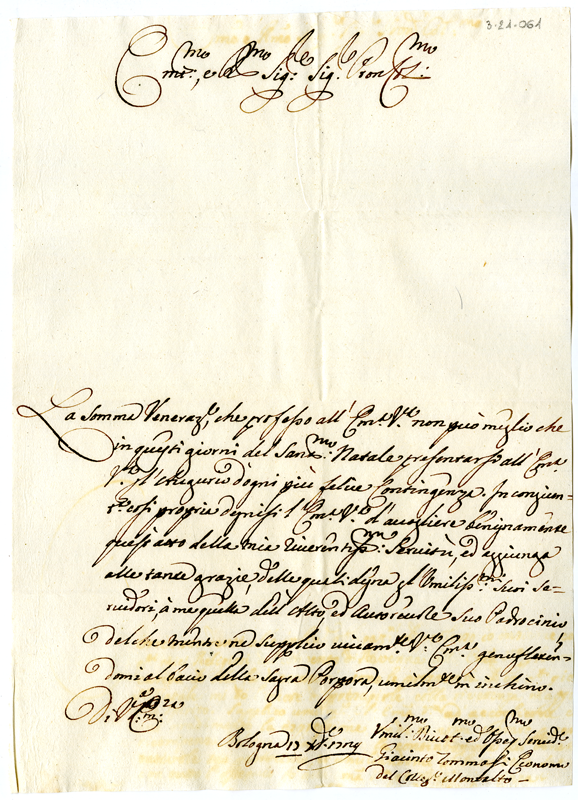 3-21-061
Em.mo, e R.mo Sig.re Sig.re P̄ron Col.mo
La somma Veneraz.e, che professo all' Em.a V.a non può meglio che
in questi giorni del Sant.mo Natale presentarsi all' Em.a
V.a d'ogni più felice Contingenza. In congiun-
così propria degnisi l' Em.a V.a d'accogliere benignamente
quest' atto della mia riverentiss.ma Servitù, ed aggiunga
alle tante grazie, delle quali degna gl' Umiliss.mi suoi Se-
rvidori, à me quella dell' Alto, ed Autorevole suo Padrocinio
del che mentre ne supplico vivam.te V.a Em.a genuflesten-
domi al bacio della Sagra Porpora, umilm.te m' inchino.
Di V.a Em.za
Bologna 17 Xbre
Umil.mo Divot.mo ed Osseq.mo Servid.e
Giacinto Tommasi Economo
del Colleg.o Montalto